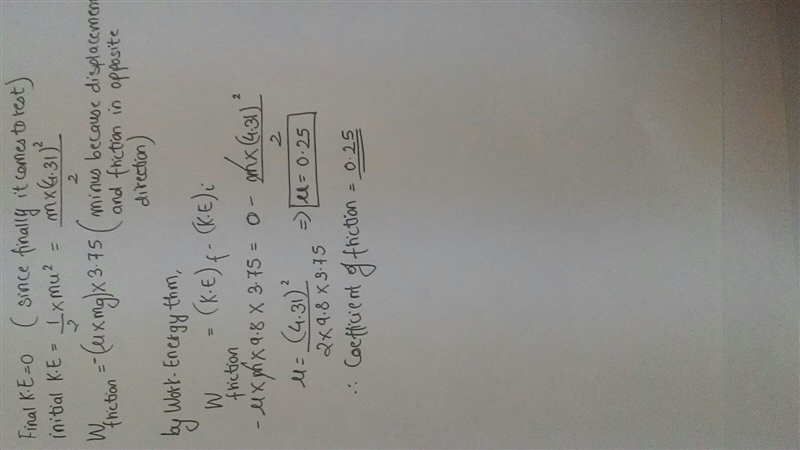 Final K.E=0 (since finally it comes to rest)
initial K.E = 1/2 × mu² = m×(4.31)²/2
W friction = -(μ×mg)×3.75 (minus because displacemen
and friction in opposite
direction)
by Work-Energy thm,
W friction = (K.E)f - (K.E)i
-μ×m×9.8×3.75 = 0 - m×(4.31)²/2
μ = (4.31)²/2×9.8×3.75 => μ = 0.25
∴ Coefficient of friction = 0.25